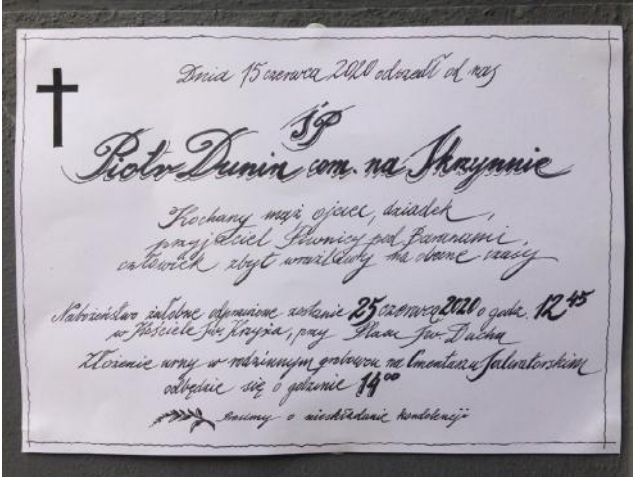 Dnia 15 czerwca 2020 odszedł od nas
ŚP
Piotr Dunin com. na Skrzynnie
Kochany mąż ojciec, dziadek,
przyjaciel Piwnicy pod Baranami,
człowiek zbyt wrażliwy na obecne czasy
Nabożeństwo żałobne odprawione zostanie 25 czerwca 2020 o godz. 12⁴⁵
w Kościele Św. Krzyża, przy Placu Św. Ducha
Złożenie urny w rodzinnym grobowcu na Cmentarzu Salwatorskim
odbędzie się o godzinie 14⁰⁰
Prosimy o nieskładanie kondolencji